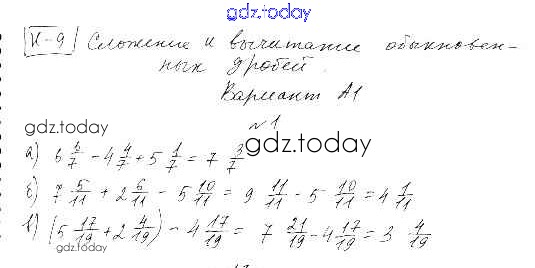 gdz.today
К-9 Сложение и вычитание обыкновен-
ных дробей.
Вариант А1
gdz.today
№1
gdz.today
а) 6 6/7 - 4 4/7 + 5 1/7 = 7 3/7
б) 7 5/11 + 2 6/11 - 5 10/11 = 9 11/11 - 5 10/11 = 4 1/11
в) (5 17/19 + 2 4/19) - 4 17/19 = 7 21/19 - 4 17/19 = 3 4/19
gdz.today